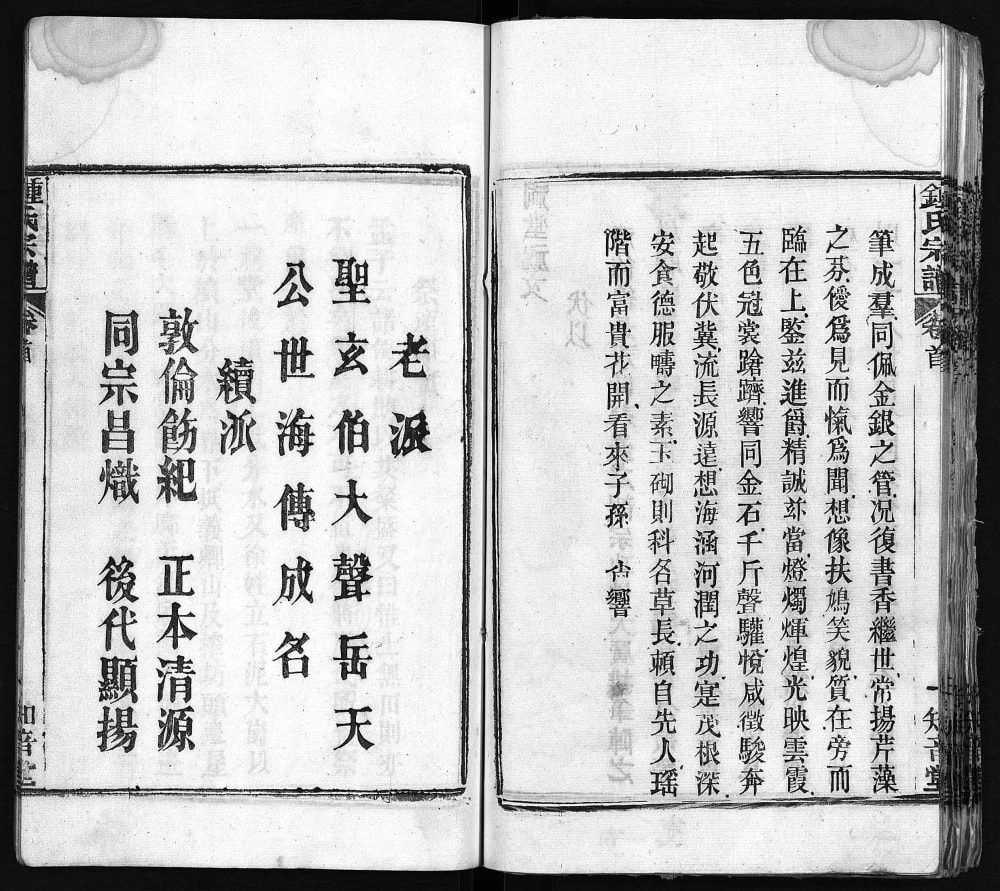 鍾氏宗譜
卷首
知音堂
筆成羣同佩金銀之管况復書香繼世常揚芹藻
之芬僾爲見而愾爲聞想像扶鳩笑貌質在旁而
臨在上鑒兹進爵精誠茲當燈燭煇煌光映雲霞
五色冠裳蹌躋響同金石千斤聲驩悅咸徵駿奔
起敬伏冀流長源遠想海涵河潤之功寔茂根深
安食德服疇之素玉砌則科名草長頼自先人瑶
階而富貴花開看來子孫 尚饗
老派
聖玄伯大聲岳天
公世海傳成名
續派
敦倫飭紀 正本清源
同宗昌熾 後代顯揚
鍾氏宗譜
卷首
知音堂